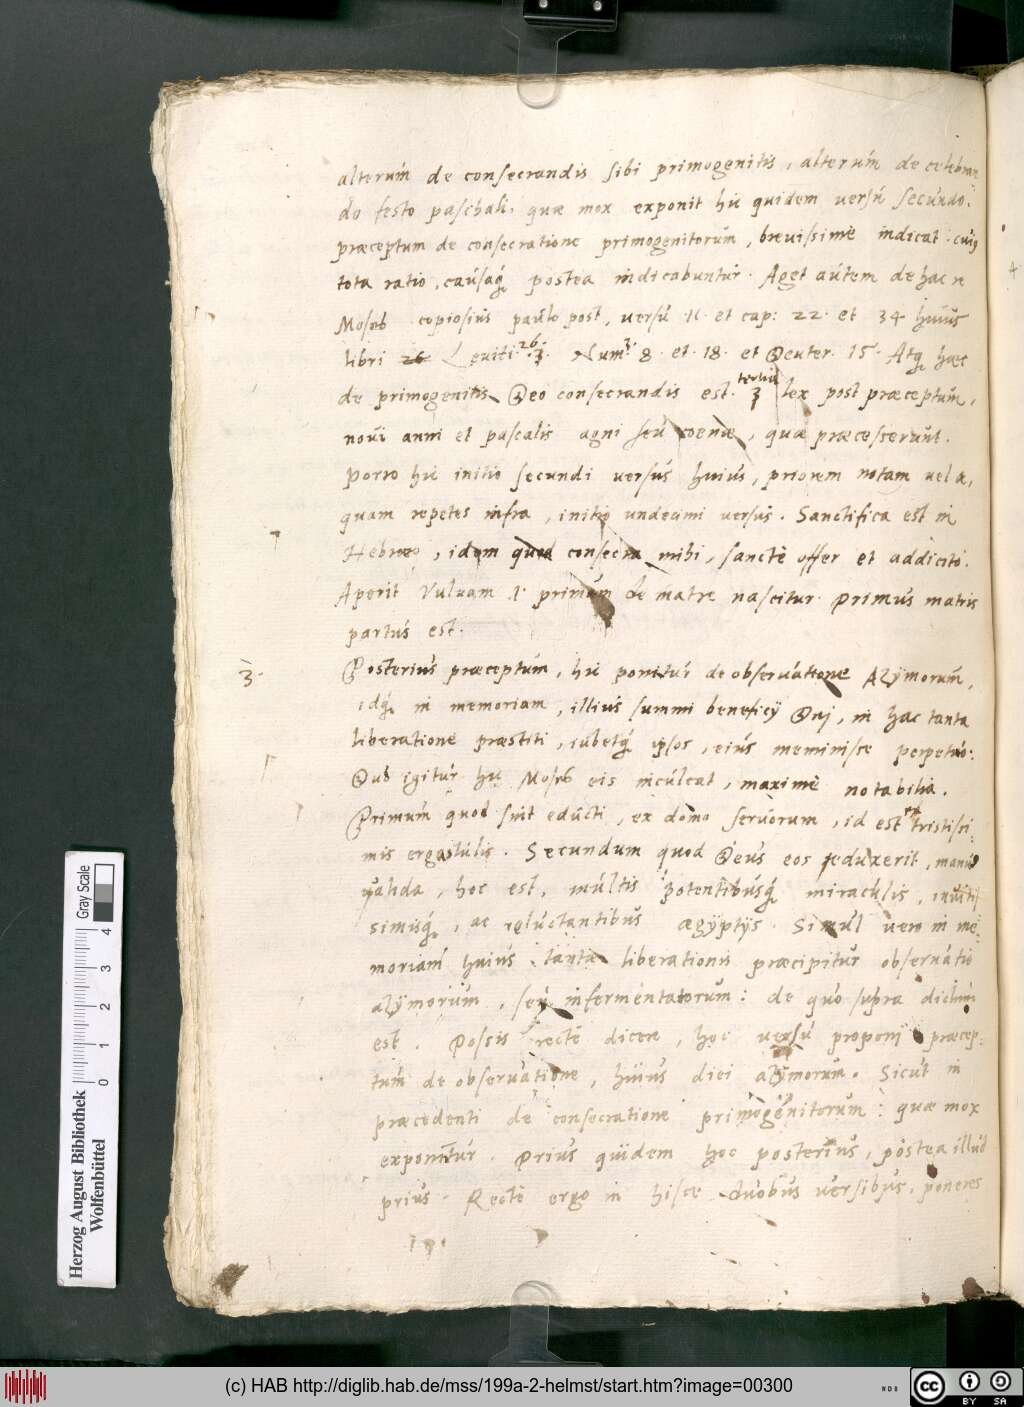 alterum de consecrandis sibi primogenitis, alterum de celebran
do festo paschali, quæ mox exponit hic quidem versu secundo:
præceptum de consecratione primogenitorum, brevissime indicat. cuius
tota ratio, causaq; postea indicabuntur. Aget autem de hac re
copiosius paulo post, versu 11. et cap: 22. et 34 huius
libri 26 Leviti. 26. 3. Num. 3. 8. et. 18. et Deuter. 15. Atq; hæc
de primogenitis Deo consecrandis est. 3 tertia lex post præceptum,
novi anni et pascalis agni seu coenæ, quæ præcesserunt.
Porro hic initio secundi versus huius, priorem notam vel a,
quam repetes infra, initio undecimi versus. Sanctifica est in
Hebræo, idem quod consecra mihi, sancte offer et addicito.
Aperit Vulvam .i. primum de matre nascitur. Primus matris
partus est.
3. Posterius præceptum, hic ponitur de observatione Azymorum,
idq; in memoriam, illius summi beneficij Dnj, in hac tanta
liberatione præstiti, iubetq; ipsos, eius meminisse perpetuo:
igitur hic eis inculcat, maxime notabilia.
Primum quod sint educti, ex domo servorum, id est ex tristissi:
mis ergastulis. Secundum quod Deus eos eduxerit, manu
valida, hoc est, multis potentibusq; miraculis, invitis
simisq;, ac reluctantibus ægyptijs. Simul vero in me:
moriam huius tantæ liberationis præcipitur observatio
azymorum, seu infermentatorum: de quo supra dictum
est. Possis recte dicere, hoc versu proponj præcep:
tum de observatione, huius diei azymorum. Sicut in
præcedenti de consecratione primogenitorum: quæ mox
exponuntur. Prius quidem hoc posterius, postea illud
prius. Recte ergo in hisce duobus versibus, poneres
Herzog August Bibliothek
Wolfenbüttel
0 1 2 3 4
Gray Scale
(c) HAB http://diglib.hab.de/mss/199a-2-helmst/start.htm?image=00300
cc BY SA